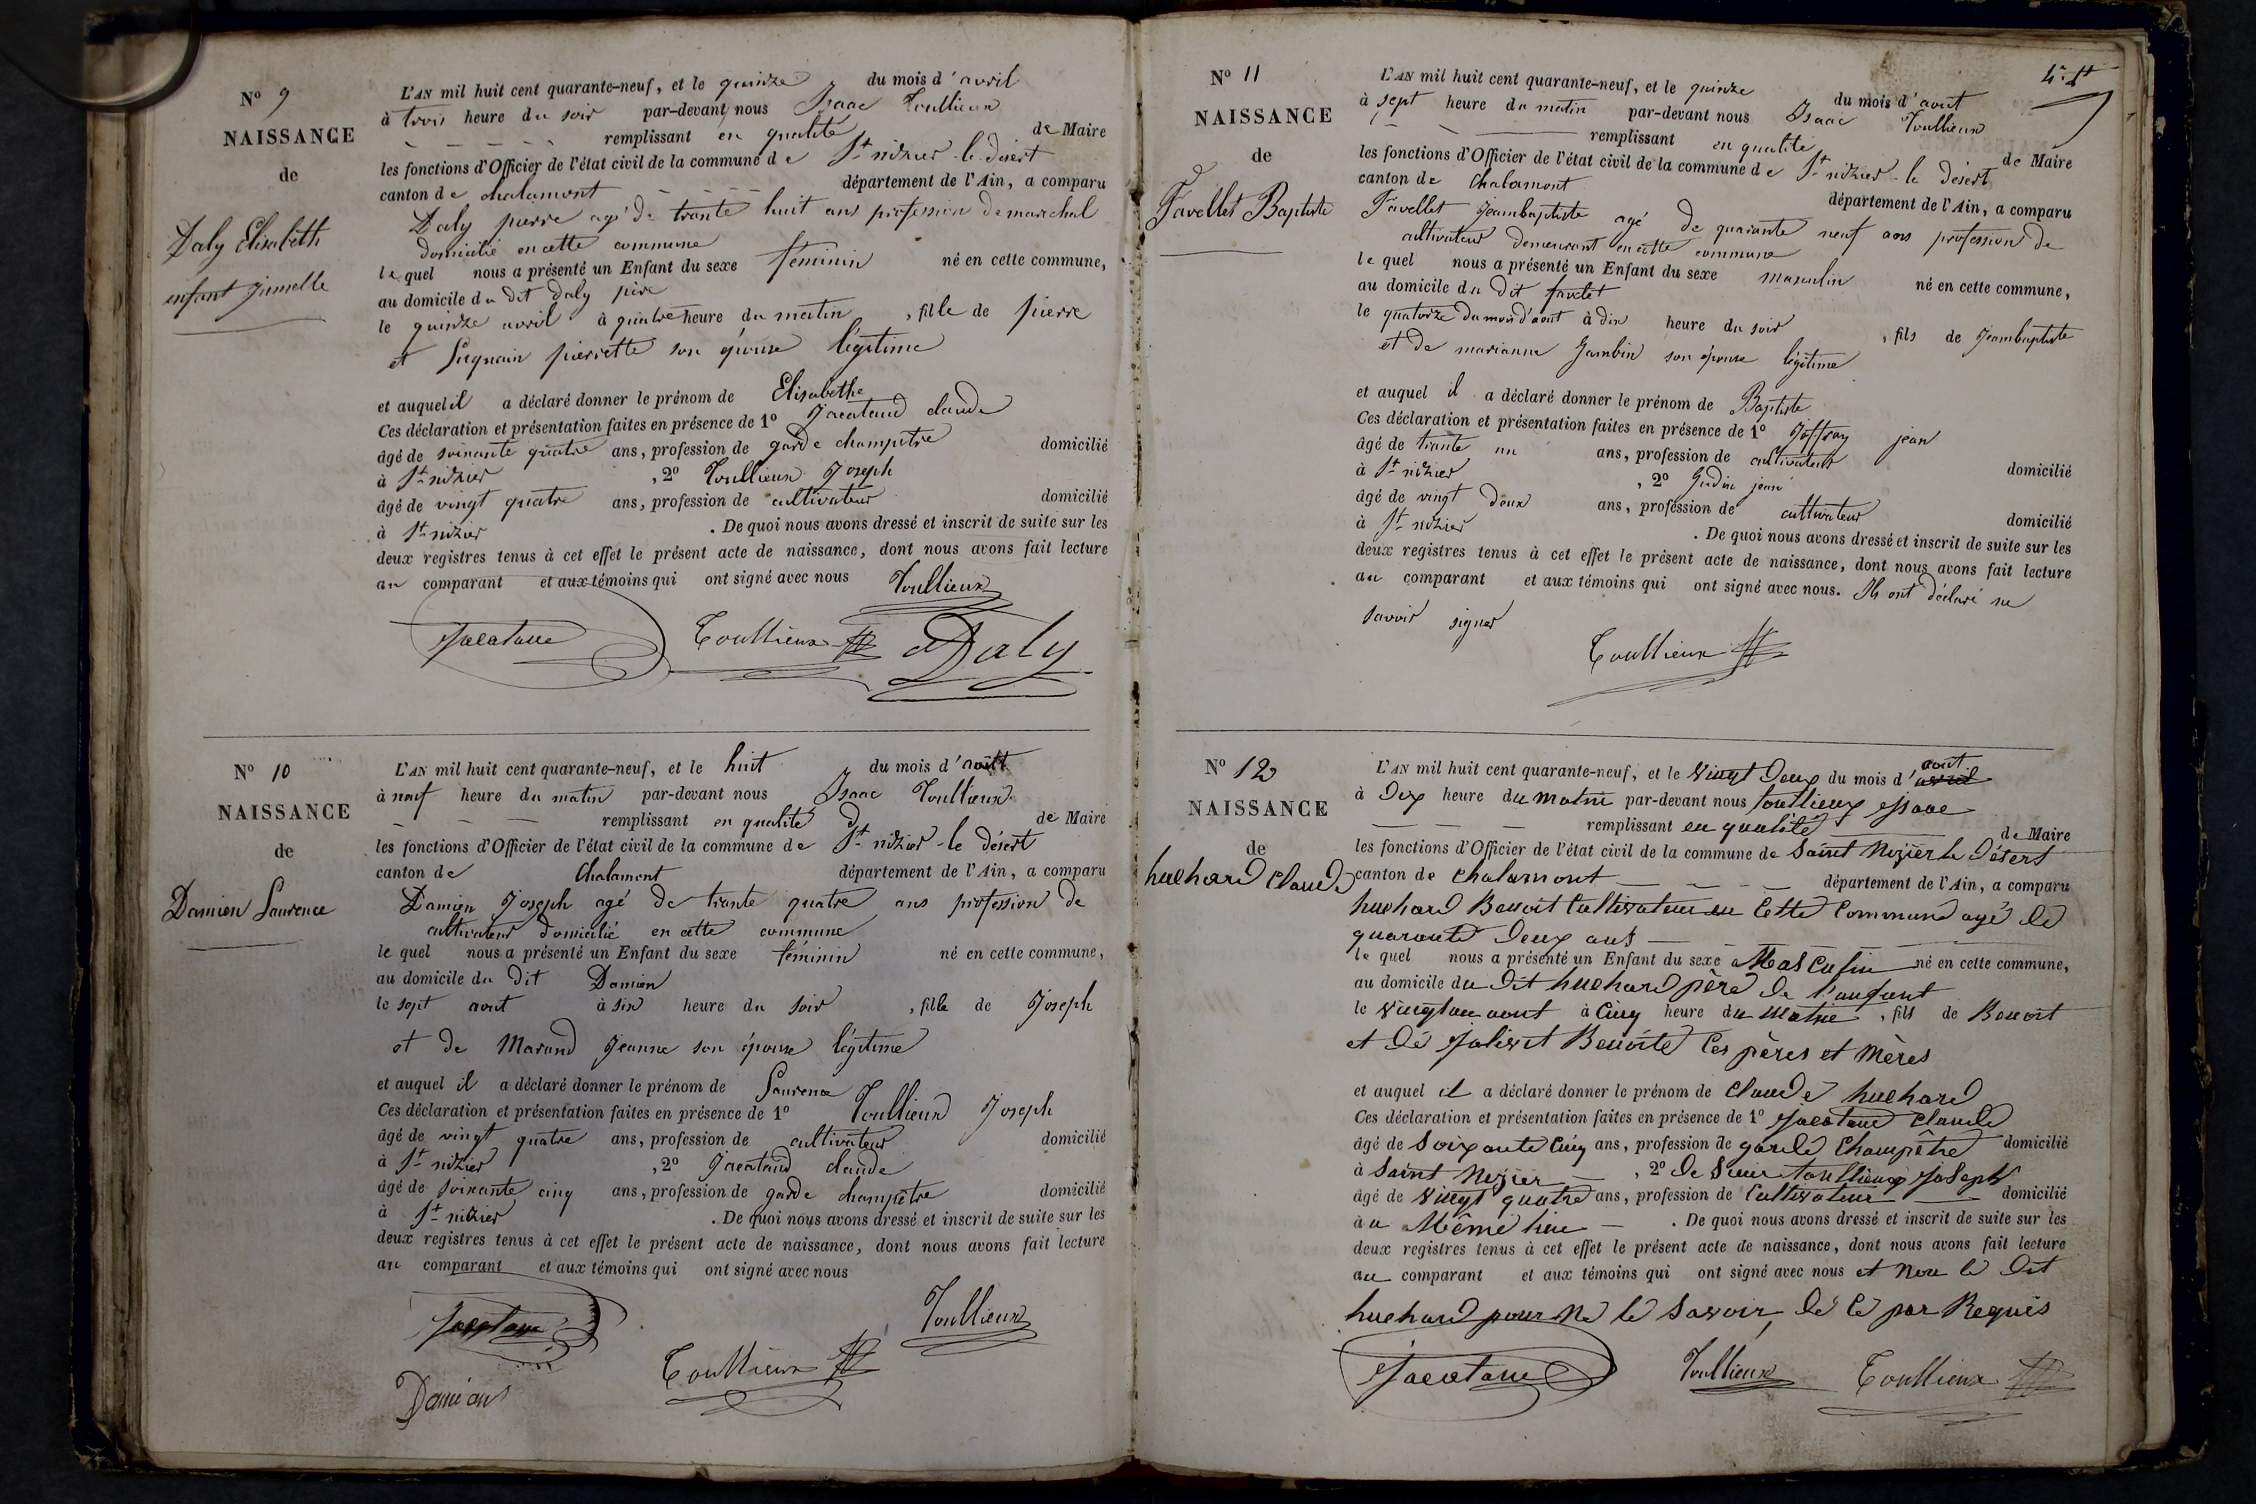 N° 9
NAISSANCE
de
Daly Elisabeth
enfant jumelle
L'AN mil huit cent quarante-neuf, et le quinze du mois d'avril
à trois heure du soir par-devant nous Isaac Toullieux
remplissant en qualité de Maire
les fonctions d'Officier de l'état civil de la commune de St nizier le désert
canton de chalamont département de l'Ain, a comparu
Daly pierre agé de trante huit ans profession de marechal
domicilié en cette commune
le quel nous a présenté un Enfant du sexe féminin né en cette commune,
au domicile du dit Daly père
le quinze avril à quatre heure du matin , fille de pierre
et pierrette son épouse légitime
et auquel il a déclaré donner le prénom de Elisabethe
Ces déclaration et présentation faites en présence de 1° Jacataud claude
âgé de soixante quatre ans, profession de garde champêtre domicilié
à St nizier , 2° Toullieux Joseph
âgé de vingt quatre ans, profession de cultivateur domicilié
à St nizier . De quoi nous avons dressé et inscrit de suite sur les
deux registres tenus à cet effet le présent acte de naissance, dont nous avons fait lecture
au comparant et aux témoins qui ont signé avec nous Toullieux
Jacataud Toullieux Daly
N° 10
NAISSANCE
de
Damien Laurence
L'AN mil huit cent quarante-neuf, et le huit du mois d'août
à neuf heure du matin par-devant nous Isaac Toullieux
remplissant en qualité de Maire
les fonctions d'Officier de l'état civil de la commune de St nizier-le désert
canton de Chalamont département de l'Ain, a comparu
Damien Joseph agé de trante quatre ans profession de
cultivateur domicilié en cette commune
le quel nous a présenté un Enfant du sexe féminin né en cette commune,
au domicile du dit Damien
le sept aout à six heure du soir , fille de Joseph
et de Marand Jeanne son épouse légitime
et auquel il a déclaré donner le prénom de Laurence
Ces déclaration et présentation faites en présence de 1° Toullieux Joseph
âgé de vingt quatre ans, profession de cultivateur domicilié
à St nizier , 2° Jacataud claude
âgé de soixante cinq ans, profession de garde champêtre domicilié
à St nizier . De quoi nous avons dressé et inscrit de suite sur les
deux registres tenus à cet effet le présent acte de naissance, dont nous avons fait lecture
au comparant et aux témoins qui ont signé avec nous
Toullieux
Jacataud
Toullieux
Damians
N° 11
NAISSANCE
de
Favellet Baptiste
L'AN mil huit cent quarante-neuf, et le quinze du mois d'aout
à sept heure du matin par-devant nous Isaac Toullieux
remplissant en qualité de Maire
les fonctions d'Officier de l'état civil de la commune de St nizier-le désert
canton de Chalamont département de l'Ain, a comparu
Favellet Jeambaptiste agé de quarante neuf ans profession de
cultivateur demeurant en cette commune
le quel nous a présenté un Enfant du sexe masculin né en cette commune,
au domicile du dit favelet
le quatorze du mois d'aout à dix heure du soir , fils de Jeambaptiste
et de marianne Jambin son épouse légitime
et auquel il a déclaré donner le prénom de Baptiste
Ces déclaration et présentation faites en présence de 1° Joffray jean
âgé de trante un ans, profession de cultivateur domicilié
à St nizier , 2° Gudin jean
âgé de vingt deux ans, profession de cultivateur domicilié
à St nizier . De quoi nous avons dressé et inscrit de suite sur les
deux registres tenus à cet effet le présent acte de naissance, dont nous avons fait lecture
au comparant et aux témoins qui ont signé avec nous. Ils ont déclaré ne
savoir signer
Toullieux
N° 12
NAISSANCE
de
huchard Claude
aout
L'AN mil huit cent quarante-neuf, et le vingt deux du mois d'avril
à dix heure du matin par-devant nous toullieux Isaac
remplissant en qualité de Maire
les fonctions d'Officier de l'état civil de la commune de Saint Nizier le Désert
canton de chalamont département de l'Ain, a comparu
huchard Benoit Cultivateur en Cette Commune agé de
quarante deux ans
le quel nous a présenté un Enfant du sexe Masculin né en cette commune,
au domicile du dit huchard père de l'anfant
le vingt un aout à Cinq heure du matin , fils de Benoit
et de Jolivet Benoite Ces pères et Mères
et auquel il a déclaré donner le prénom de Claude huchard
Ces déclaration et présentation faites en présence de 1° Jacataud Claude
âgé de Soixante Cinq ans, profession de garde Champêtre domicilié
à Saint Nizier , 2° de Sieur toullieux Joseph
âgé de vingt quatre ans, profession de Cultivateur domicilié
à u Même lieu . De quoi nous avons dressé et inscrit de suite sur les
deux registres tenus à cet effet le présent acte de naissance, dont nous avons fait lecture
au comparant et aux témoins qui ont signé avec nous et Non le dit
huchard pour Ne le Savoir, de Ce par Requis
Jacataud Toullieux Toullieux